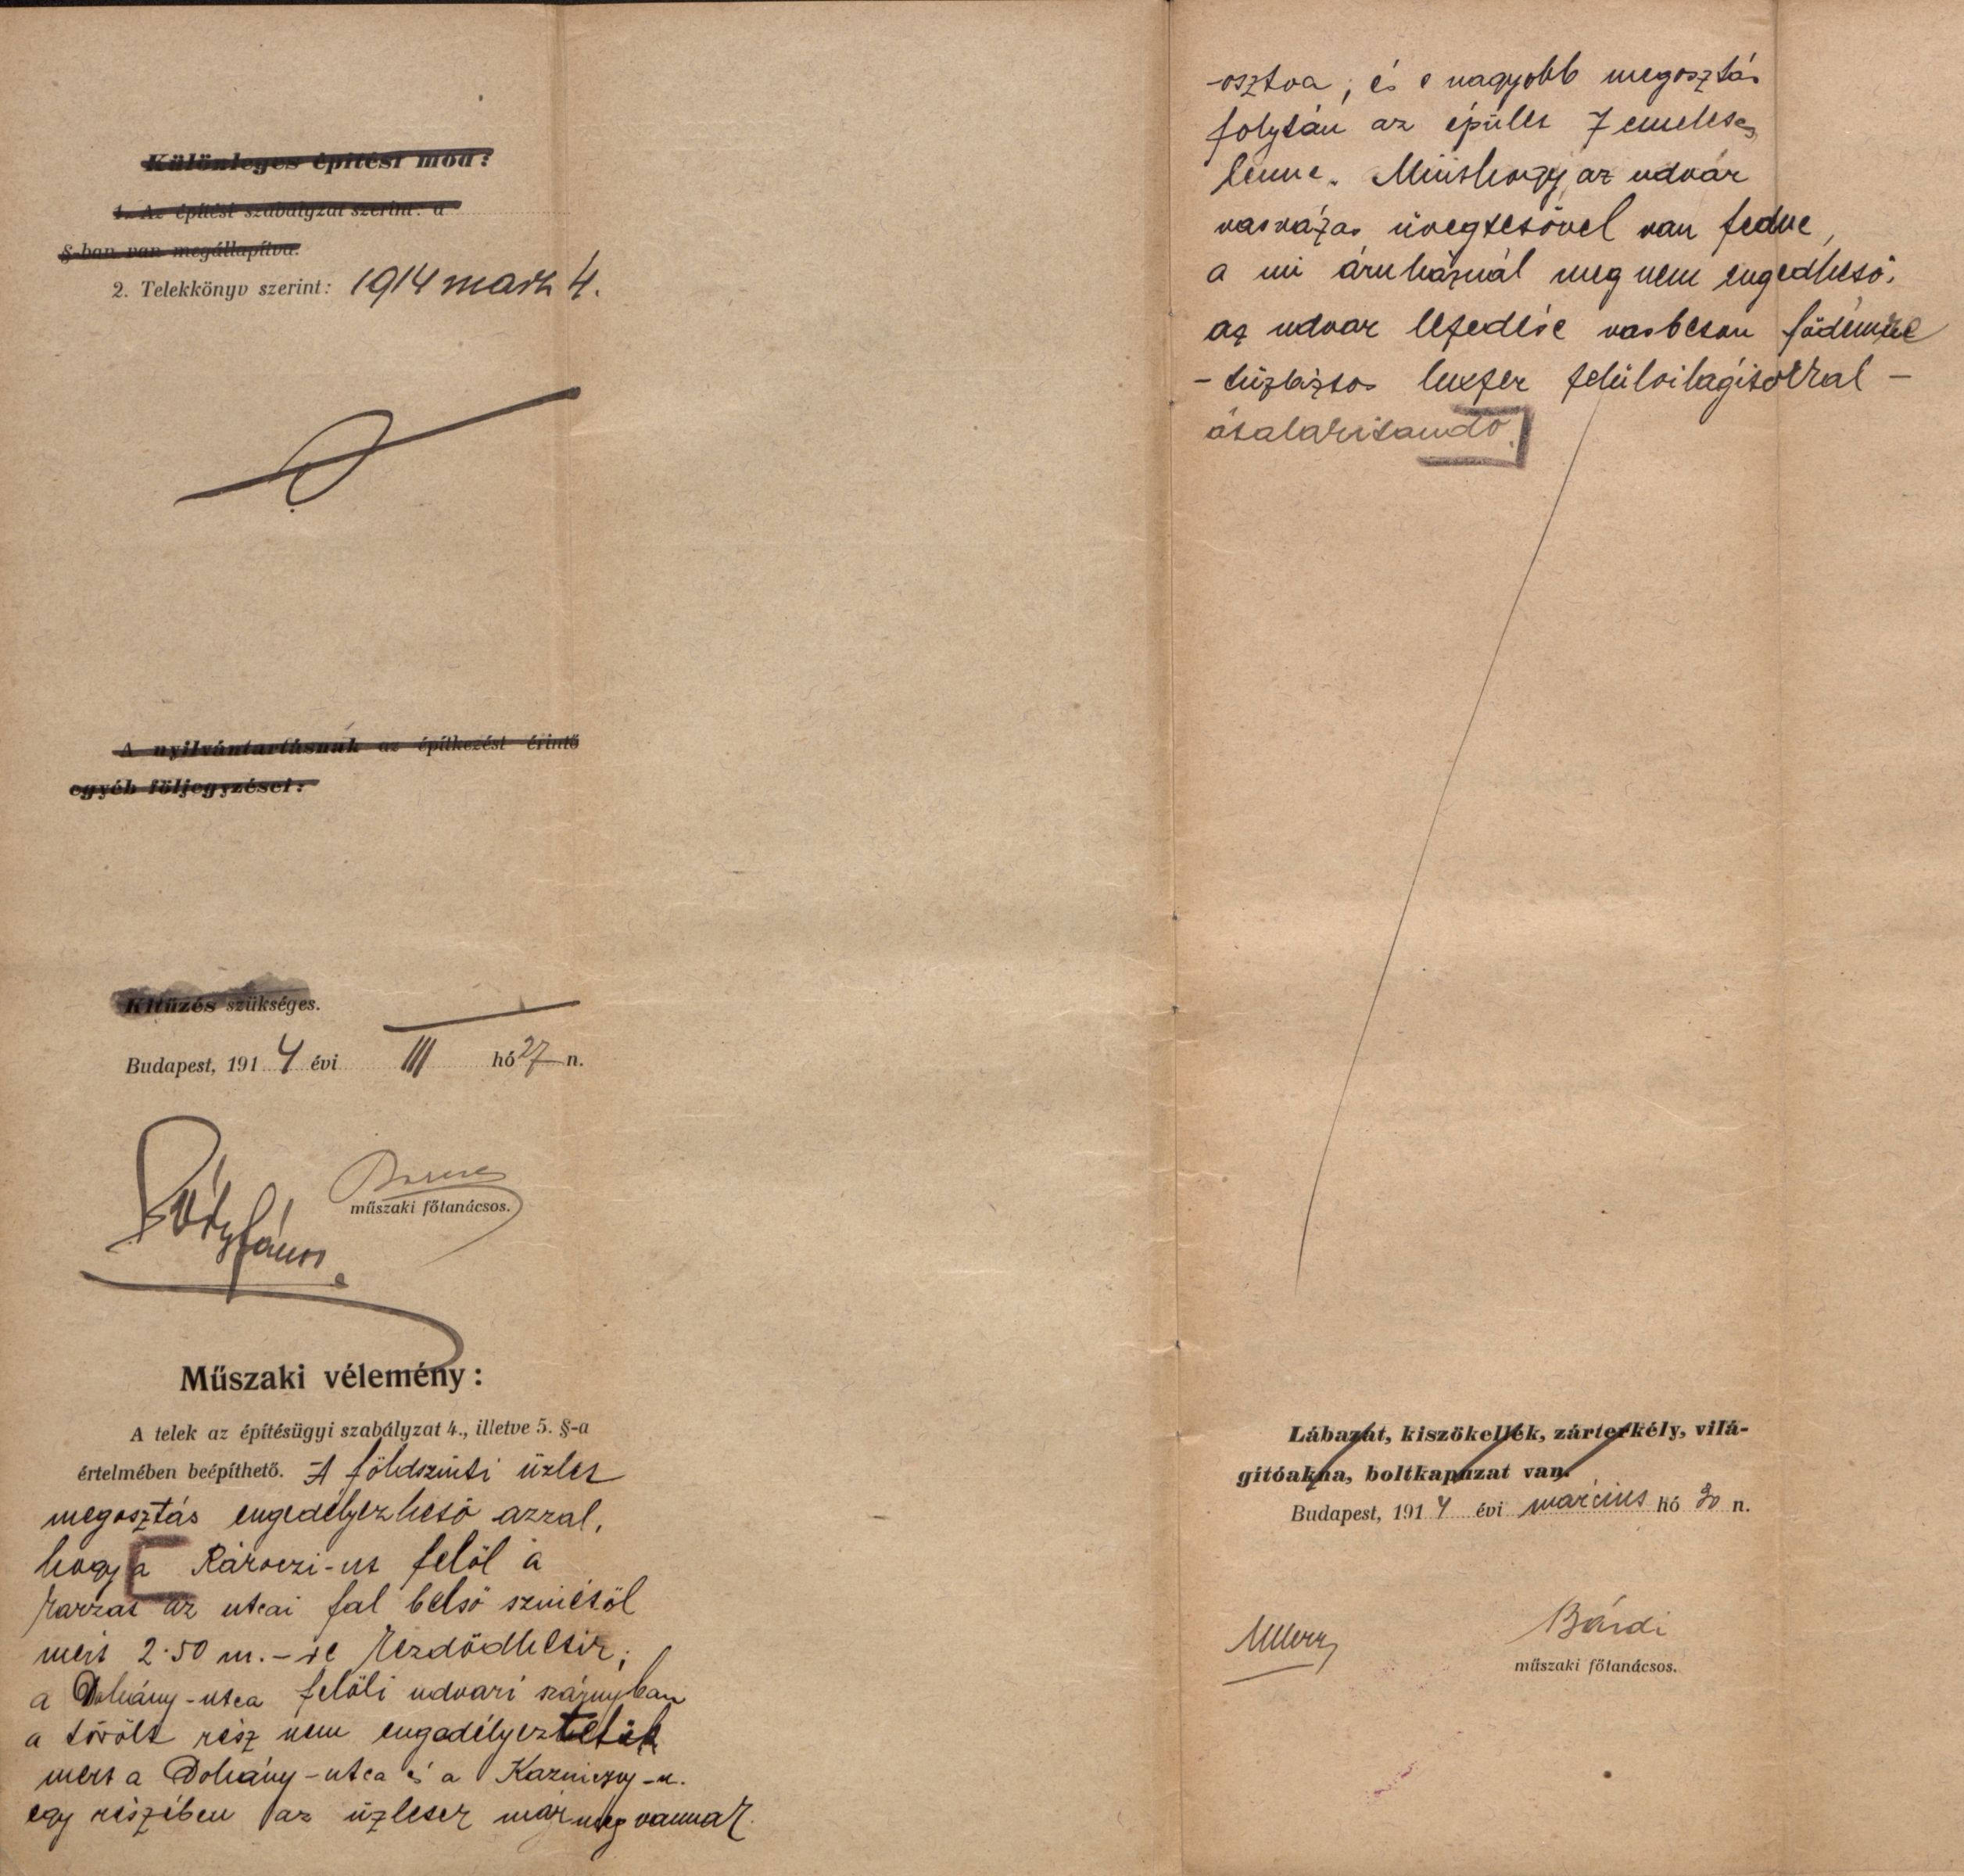 Különleges építési mód:
1. Az építési szabályzat szerint: a
§-ban van megállapítva.
2. Telekkönyv szerint: 1914 márcz 4.
A nyilvántartásnak az építkezést érintő
egyéb följegyzései:
Kitűzés szükséges.
Budapest, 1914 évi III hó 27 n.
műszaki főtanácsos.
Műszaki vélemény:
A telek az építésügyi szabályzat 4., illetve 5. §-a
értelmében beépíthető. A földszinti üzlet
megosztás engedélyezhető azzal,
hogy a Rákoczi-ut felől a
karzat az utcai fal belső szinétől
mért 2·50 m.-re kezdődhetik;
a Dohány-utca felöli udvari szárnyban
a törölt rész nem engedélyeztetik
mert a Dohány-utca és a Kazinczy-u.
egy részében az üzletek már meg vannak
-osztva, és e nagyobb megosztás
folytán az épület 7 emeletes
lenne. Minthogy az udvar
vasvázas üvegtetővel van fedve,
a mi áruháznál meg nem engedhető;
az udvar lefedése vasbeton födémre
- tűzbiztos luxfer felülvilágitókkal -
átalakitandó.
Lábazat, kiszökellék, zárterkély, vilá-
gítóakna, boltkapuzat van.
Budapest, 1914 évi március hó 30 n.
Bárdi
műszaki főtanácsos.